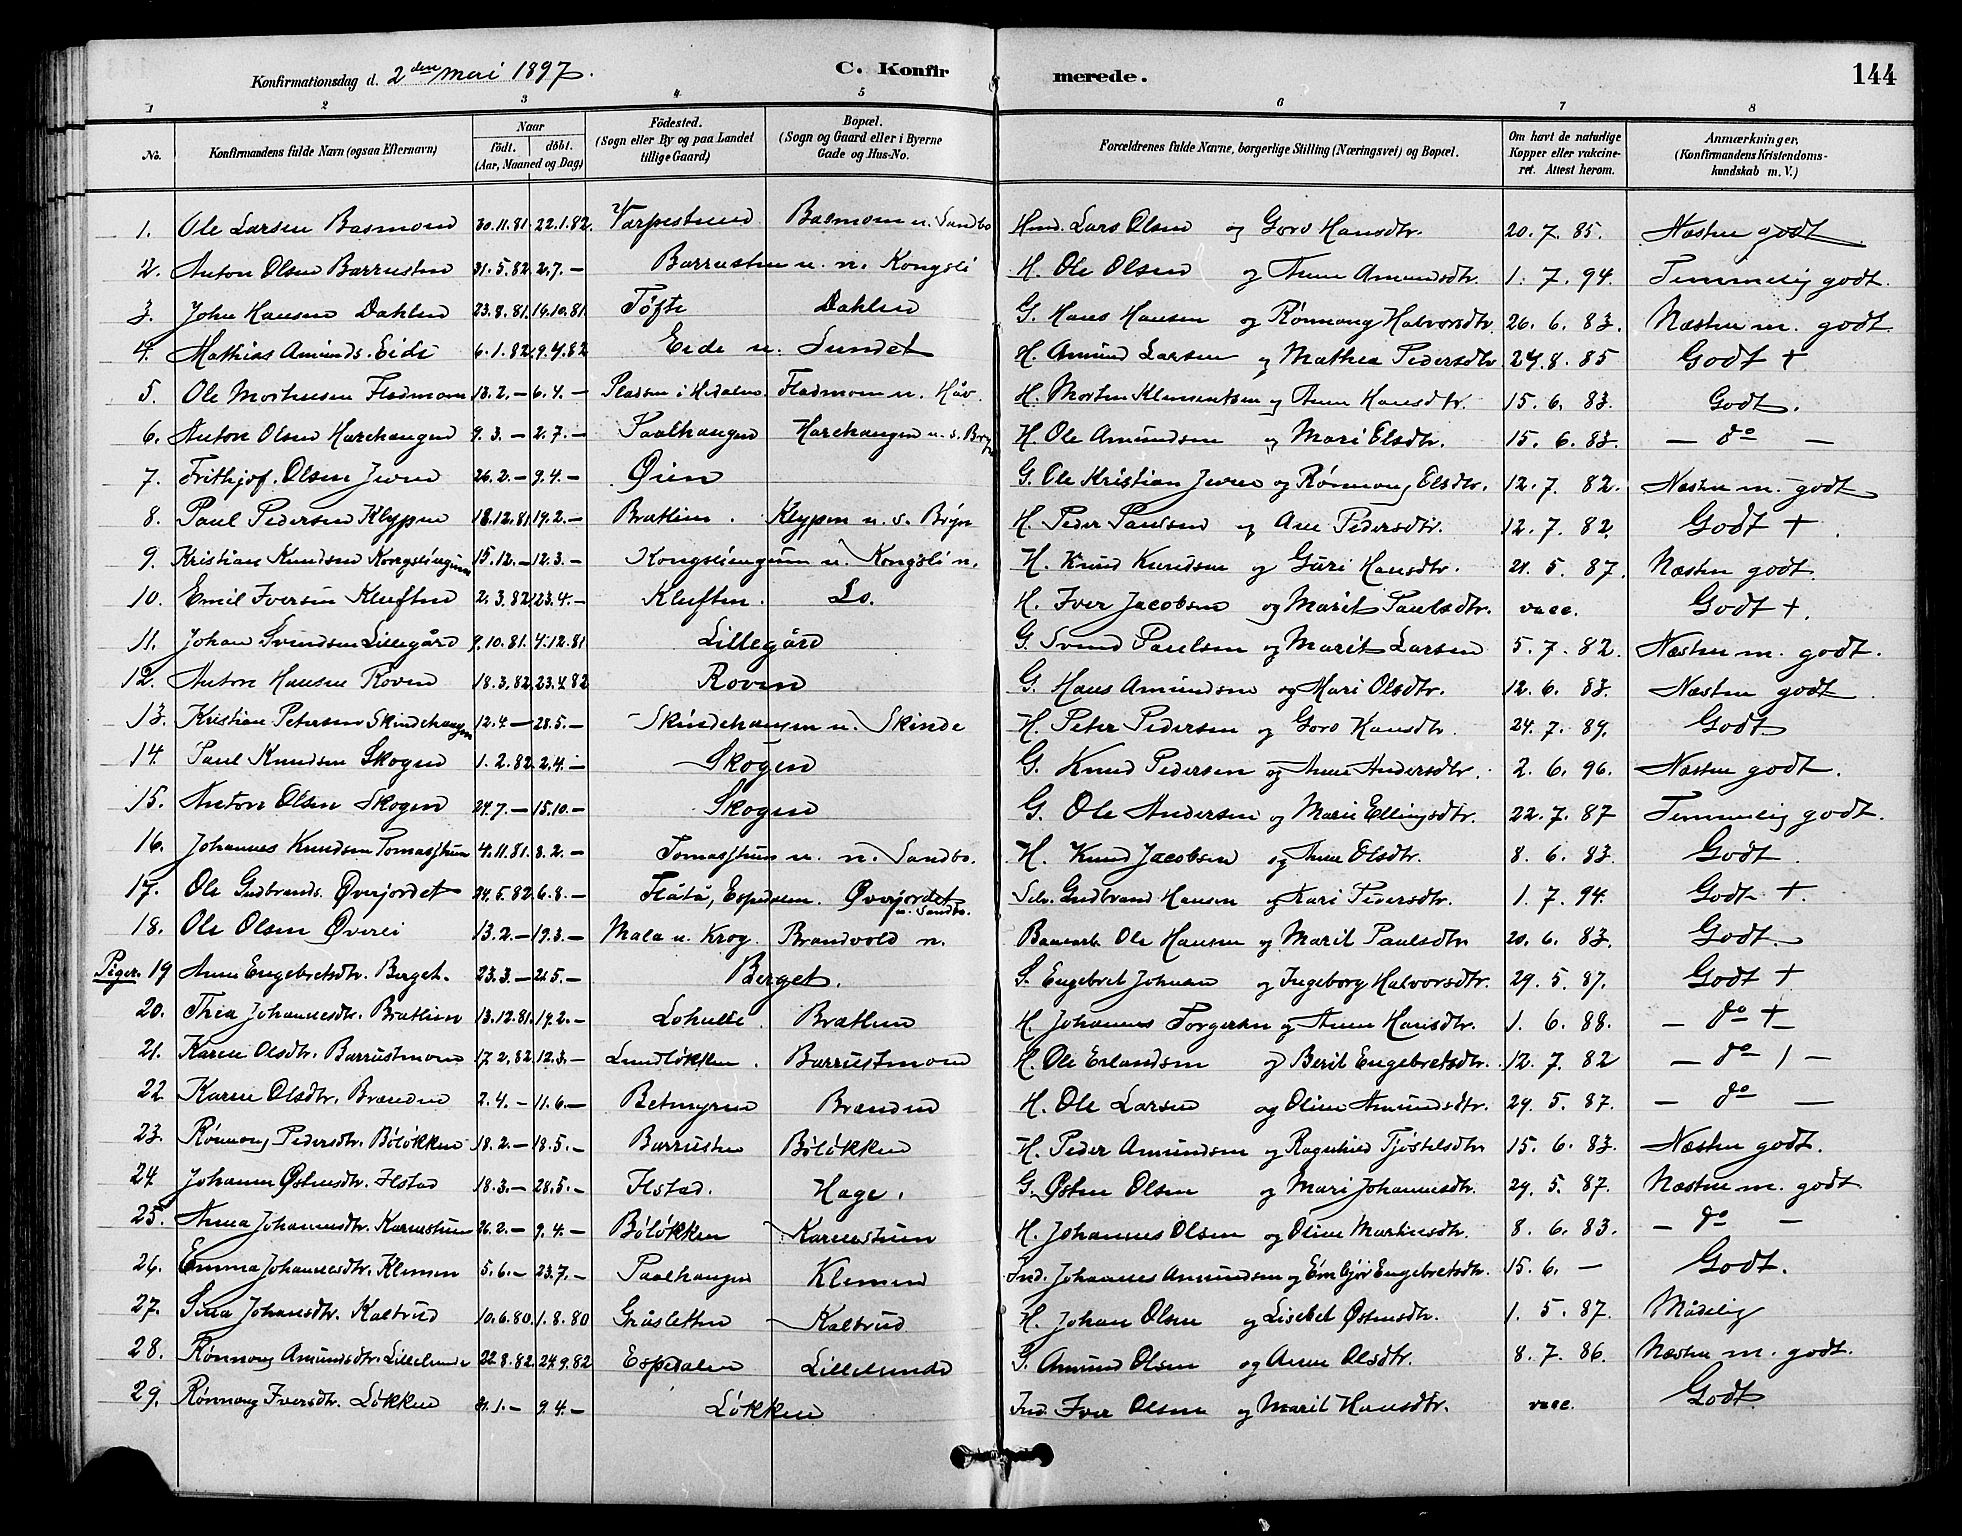 Konfirmationsdag d. 2den mai 1897. C. Konfirmerede. 144
1 2 3 4 5 6 7 8
No. Konfirmandens fulde Navn (ogsaa Efternavn) Naar födt. döbt. (Aar, Maaned og Dag) Födested. (Sogn eller By og paa Landet tillige Gaard) Bopæl. (Sogn og Gaard eller i Byerne Gade og Hus-No. Forældrenes fulde Navne, borgerlige Stilling (Næringsvei) og Bopæl. Om havt de naturlige Kopper eller vakcineret. Attest herom. Anmærkninger, (Konfirmandens Kristendomskundskab m. V.)
1. Ole Larsen Basmoen 30.11.81. 22.1.82. Varpestuen Basmoen u. Sandbo Hmd. Lars Olsen og Goro Hansdtr. 20.7.85. Næsten godt
2. Anton Olsen Barrusten 31.5.82 2.7.— Barrusten u. n. Kongsli H. Ole Olsen og Anne Amundsdtr. 1.7.94. Temmelig godt.
3. John Hansen Dahlen 23.8.81. 16.10.81 Tøfte Dahlen G. Hans Hansen og Rønnaug Halvorsdtr. 26.6.83. Næsten m. godt
4. Mathias Amunds. Eide 6.1.82. 9.4.82 Eide u. Sundet H. Amund Larsen og Mathea Pedersdtr. 24.8.85 Godt +
5. Ole Mortensen Fladmoen 13.2.— 6.4.— Pladsen i Hedalen. Fladmoen u. Håv. H. Morten Klementsen og Anne Hansdtr. 15.6.83. Godt.
6. Anton Olsen Harehaugen 9.3.— 2.7.— Paalhaugen Harehaugen u. s. H. Ole Amundsen og Mari Olsdtr. 15.6.83. — do —
7. Frithjof. Olsen Jevne 26.2.— 9.4.— Øien G. Ole Kristian Jevne og Rønnaug Olsdtr. 12.7.82. Næsten m. godt
8. Paul Pedersen Klypen 18.12.81 19.2.— Bratlien. Klypen u. s. Bryn H. Peder Paulsen og Ane Pedersdtr. 12.7.82. Godt +.
9. Kristian Knudsen Kongsliengum 15.12.— 12.3.— Kongsliengum u. Kongsli n. H. Knud Knudsen og Guri Hansdtr. 21.5.87. Næsten godt.
10. Emil Iversen Kluften 2.3.82 23.4.— Kluften. Lo. H. Iver Jacobsen og Marit Paulsdtr. vacc. Godt +.
11. Johan Svendsen Lillegård 9.10.81. 4.12.81 Lillegård G. Svend Paulsen og Marit Larsen 5.7.82. Næsten m. godt.
12. Anton Hansen Roven 18.3.82. 23.4.82 Roven G. Hans Amundsen og Mari Olsdtr. 12.6.83. Næsten godt
13. Kristian Petersen Skindehaugen 12.4.— 28.5.— Skindehaugen u. Skinde H. Peter Pedersen og Goro Hansdtr. 24.7.89. Godt
14. Paul Knudsen Skogen 1.2.82. 2.4.— Skogen G. Knud Pedersen og Anne Andersdtr. 2.6.96. Næsten godt.
15. Anton Olsen Skogen 24.7.— 15.10.— Skogen G. Ole Andersen og Marie Ellingsdtr. 22.7.87 Temmelig godt.
16. Johannes Knudsen Tomasstuen 4.11.81. 8.2.— Tomasstuen u. n. Sandbo. H. Knud Jacobsen og Anne Olsdtr. 8.6.83. Godt.
17. Ole Gudbrands. Øverjordet 24.5.82 6.8.— Flåtå, Espedalen. Øverjordet u. Sandbo. Selv. Gudbrand Hansen og Kari Pedersdtr. 1.7.94. Godt +.
18. Ole Olsen Øverli 13.2.— 19.3.— Mala u. Krog. Brandvold n. Ole Hansen og Marit Paulsdtr. 20.6.83. Godt.
Piger. 19 Anne Engebretsdtr. Berget. 23.3.— 21.5.— Berget. S. Engebret Johnsen og Ingeborg Halvorsdtr. 29.5.87. Godt +
20. Thea Johannesdtr. Bratlien 13.12.81. 19.2.— Lohulte. Bratlien H. Johannes Torgersen og Anne Hansdtr. 1.6.88. — do +
21. Karen Olsdtr. Barrustmoen 17.2.82 12.3.— Lundløkken. Barrustmoen H. Ole Erlandsen og Berit Engebretsdtr. 12.7.82 — do —
22. Karen Olsdtr. Brænden 2.4.— 11.6.— Betmyren Brænden H. Ole Larsen og Oline Amundsdtr. 29.5.87. — do —
23. Rønnaug Pedersdtr. Böløkken 18.2.— 18.5.— Barrusten Böløkken H. Peder Amundsen og Ragnhild Tjøstelsdtr. 15.6.83. Næsten godt.
24 Johanne Østensdtr. Flstad 18.3.— 28.5.— Flstad. Hage. G. Østen Olsen og Mari Johannesdtr. 29.5.87. Næsten m. godt
25. Anna Johannesdtr. Karnestuen 26.2.— 9.4.— Böløkken Karnestuen H. Johannes Olsen og Oline Martinsdtr. 8.6.83. — do —
26. Emma Johannesdtr. Klemen 5.6.— 23.7.— Paalhaugen Klemen Ind. Johannes Amundsen og Embjør Engebretsdtr. 15.6.— Godt.
27. Sina Johansdtr. Kaltrud 10.6.80. 1.8.80 Gråsletten Kaltrud H. Johan Olsen og Lisebet Østensdtr. 1.5.87. Mådelig
28. Rønnaug Amundsdtr. Lillelunde 22.8.82. 24.9.82 Espedalen Lillelunde S. Amund Olsen og Anne Olsdtr. 8.7.86. Næsten m. godt.
29. Rønnaug Iversdtr. Løkken 31.1.— 9.4.— Løkken Ind. Iver Olsen og Marit Hansdtr. vacc. Godt